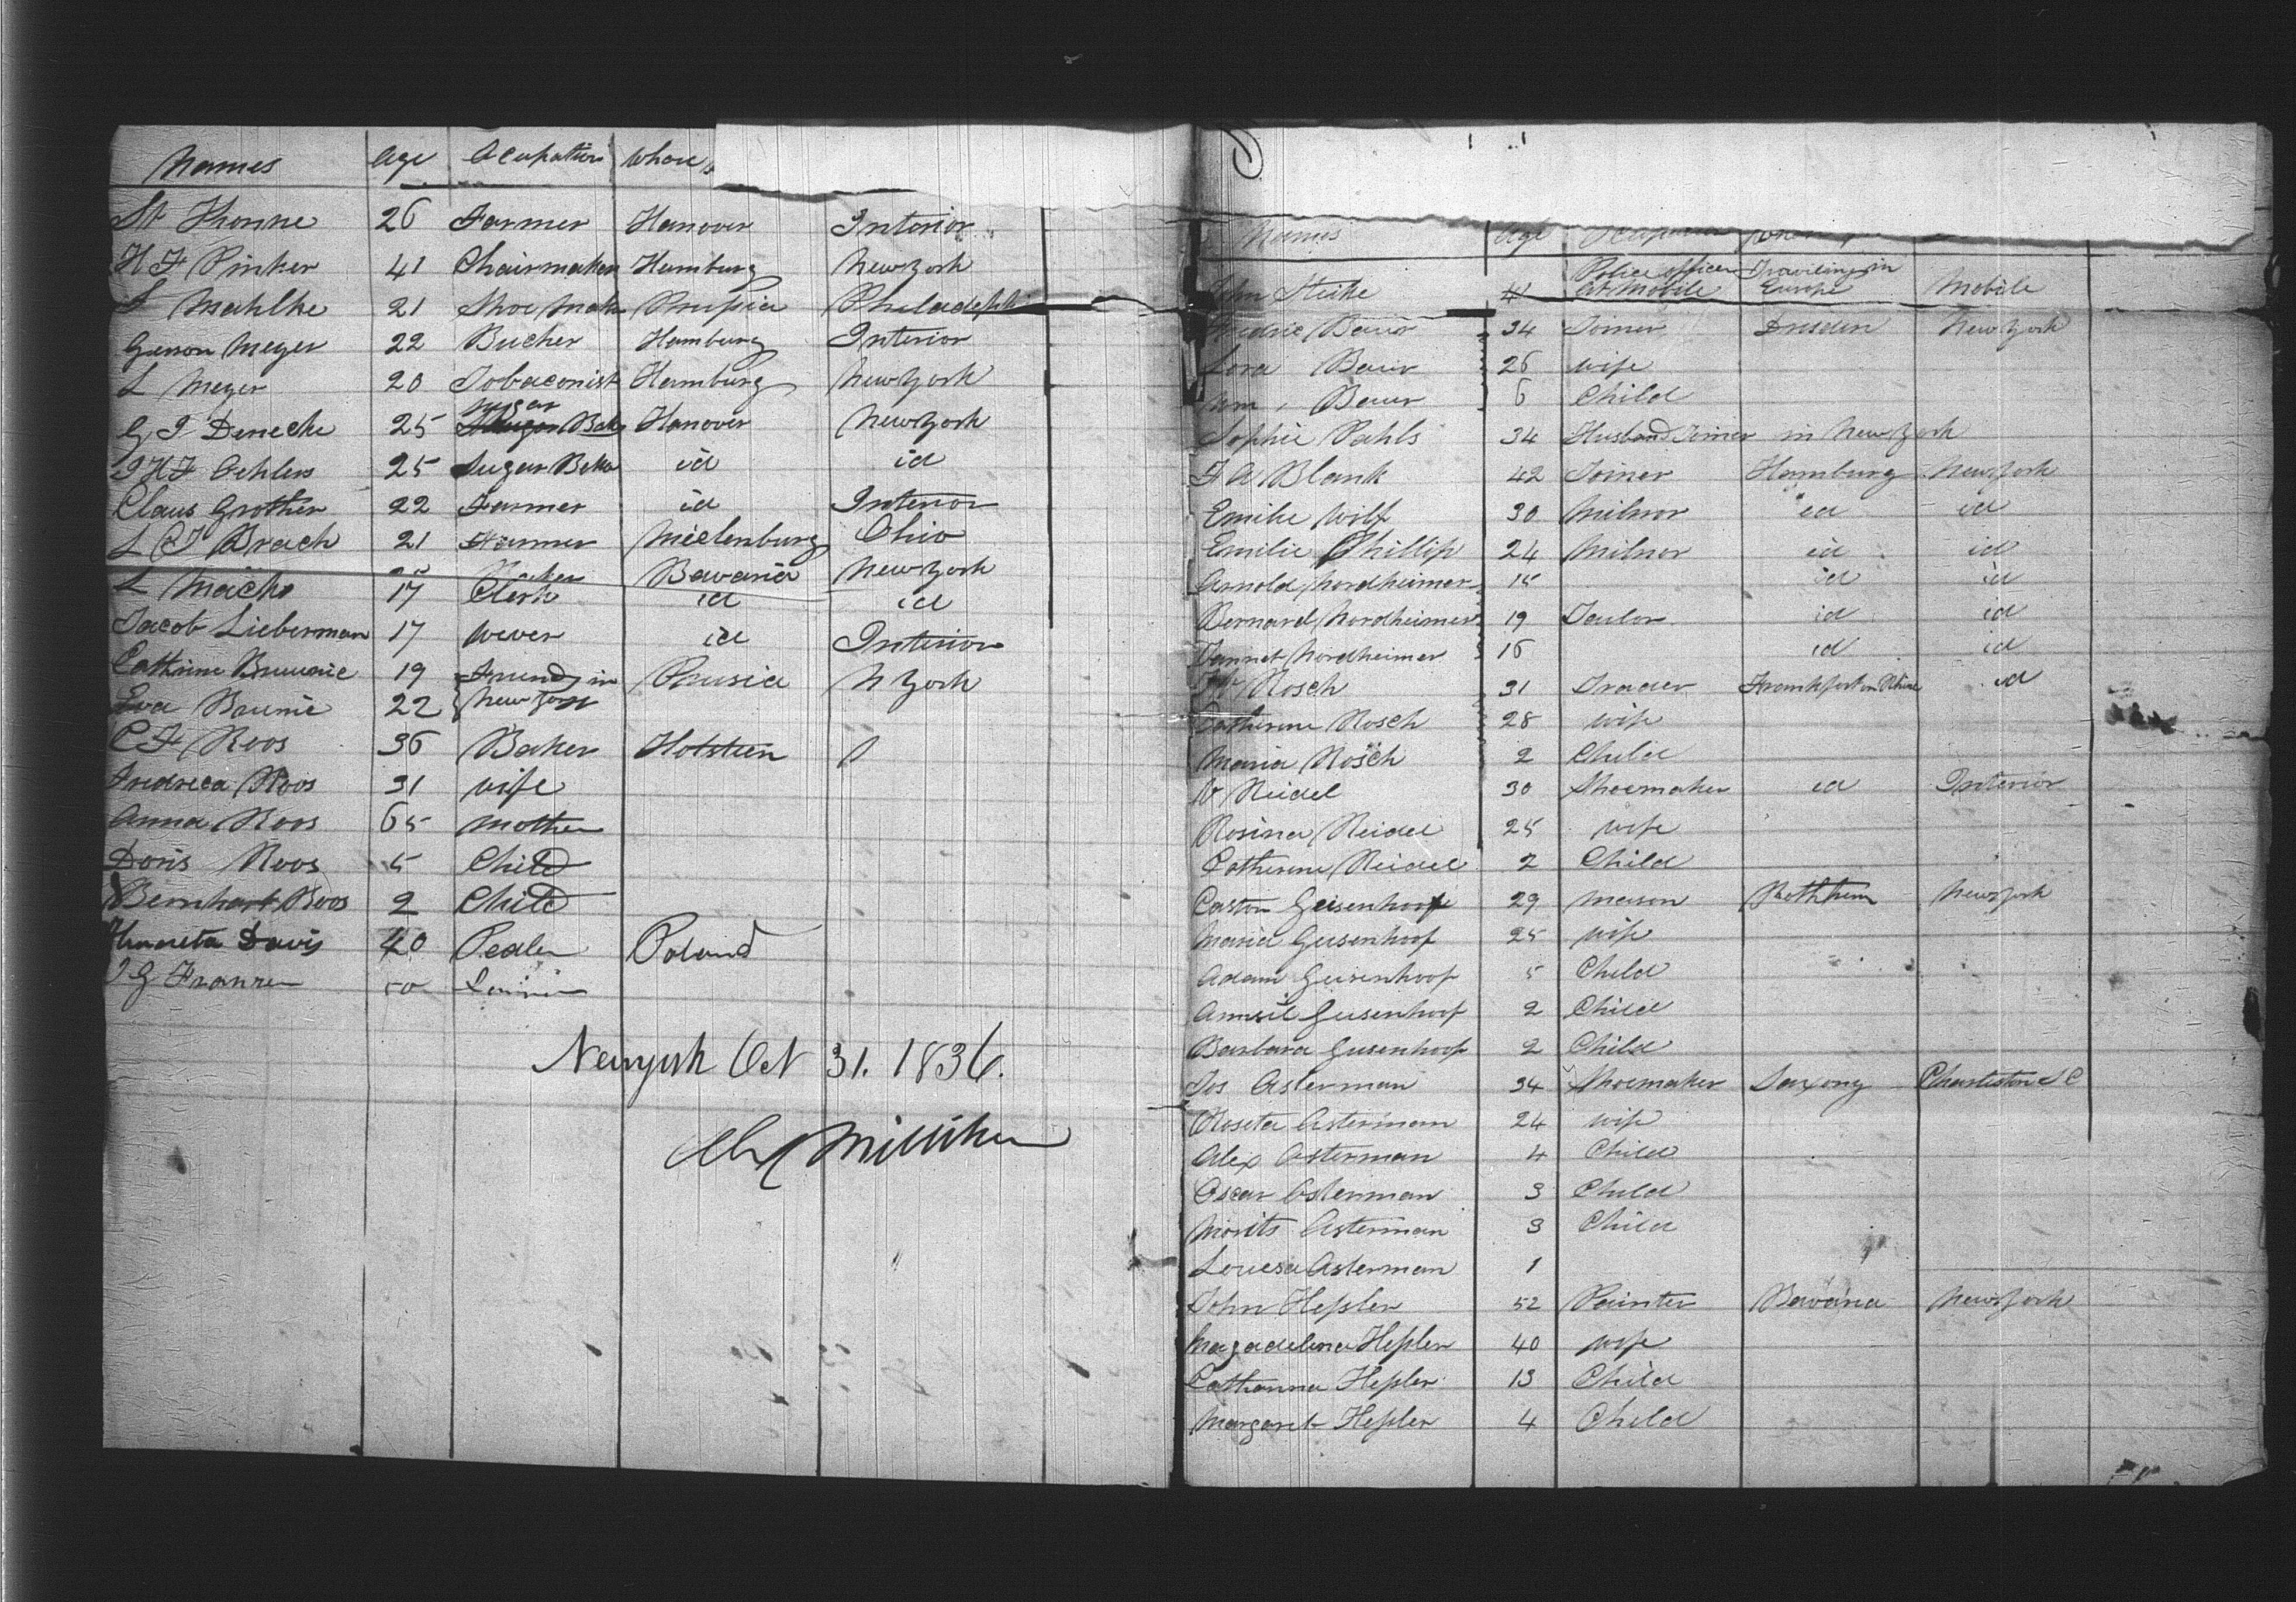 Names Age Ocupation Whare
St Thonne 26 Farmer Hanover Interior
H F Pinker 41 Chairmaker Hamburg New York
F Mahlke 21 Shoe Mak Prussia Philadelph
Gerson Meyer 22 Bucher Hamburg Interior
L Meyer 20 Tobaconist Hamburg New York
G I Denecke 25 Sugar Bak Hanover New York
I H F Oehlers 25 Sugar Beka id id
Claus Grother 22 Farmer id Interior
L C I Brach 21 Farmer Mieclenburg Ohio
Bavaria New York
L Macho 17 Clerk id id
Jacob Lieberman 17 Wever id Interior
Cathrine 19 Friend in Prusia N York
Eva Baunie 22 New York
C F Roos 36 Baker Holstein
Fredrica Roos 31 Wife
Anna Roos 65 Mother
Doris Roos 5 Child
Bernhart Roos 2 Child
Henrieta Davis 40 Pedler Poland
I G Franzen 50
Newyork Oct 31. 1836.
Milliken
Names Age Ocupation
John Steike 41 Police officer at Mobile Traviling in Europe Mobile
Fredric Baur 34 Joiner Dresden New York
Lora Baur 26 Wife
Wm. Baur 6 Child
Sophie Pahls 34 Husband Joiner in New York
F A Blank 42 Joiner Hamburg New York
Emilie Wolf 30 Milnor id id
Emilie Phillip 24 Milnor id id
Arnold Nordheimer 15 id id
Bernard Nordheimer 19 Taulor id id
Jannet Nordheimer 16 id id
Rosch 31 Trader Frankfort on Rhine id
Catherine Rosch 28 Wife
Maria Rosch 2 Child
V Reidel 30 Shoemaker id Interior
Rosina Reidel 25 Wife
Catherine Reidel 2 Child
Caston Geisenhoof 29 Mason New York
Maria Geisenhoof 25 Wife
Adam Geisenhoof 5 Child
Geisenhoof 2 Child
Barbara Geisenhoof 2 Child
Jos Asterman 34 Shoemaker Saxony Charleston S C
Roseta Asterman 24 Wife
Alex Asterman 4 Child
Oscar Asterman 3 Child
Morits Asterman 3 Child
Louesa Asterman 1
John Hessler 52 Painter Bavaria New York
Magadelena Hessler 40 Wife
Catharina Hessler 13 Child
Margaret Hessler 4 Child